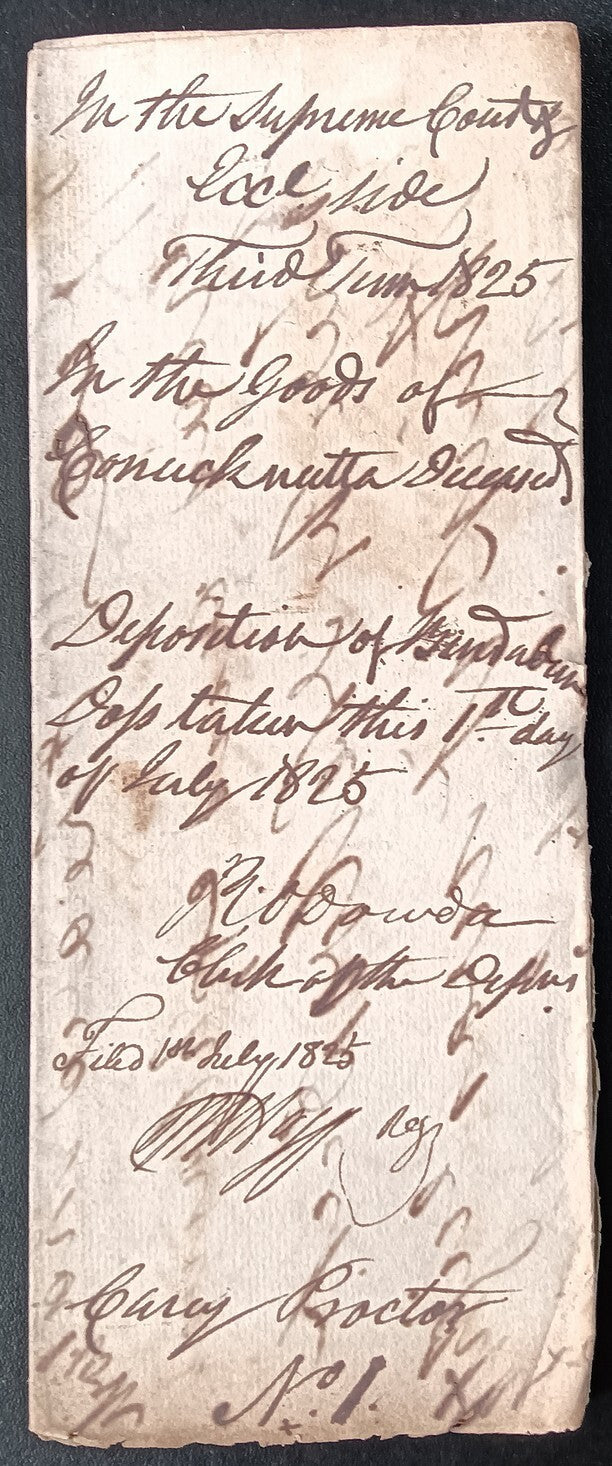 In the Supreme Court
Eccl side
Third Term 1825
In the Goods of
Conucknutta Deceased
Deposition of Bindabun
Doss taken this 1st day
of July 1825
O'Dowda
Clerk of the Depns
Filed 1st July 1825
Regr
Carey Proctor
No. 1.